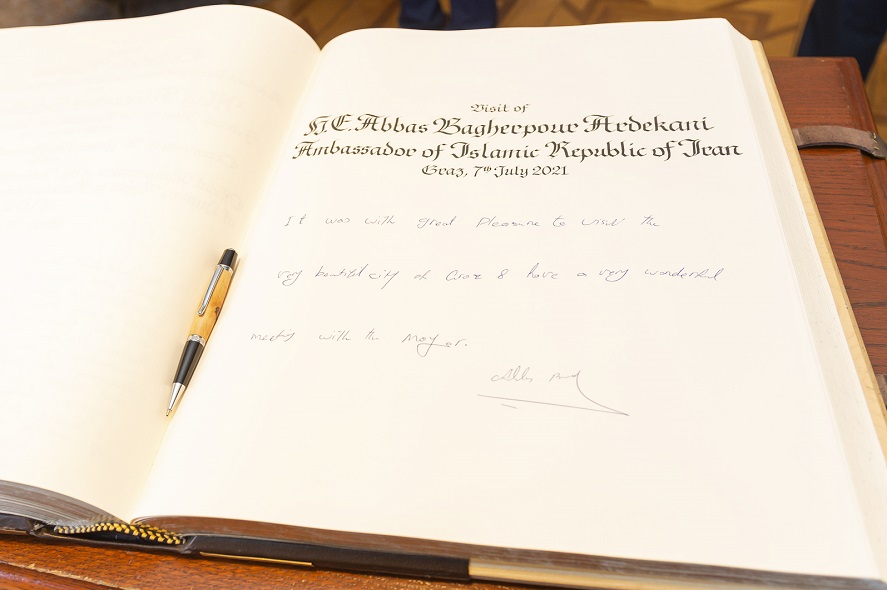 Visit of
H.E. Abbas Bagherpour Ardekani
Ambassador of Islamic Republic of Iran
Graz, 7th July 2021
It was with great pleasure to visit the
very beautiful city of Graz & have a very wonderful
meeting with the Mayor.